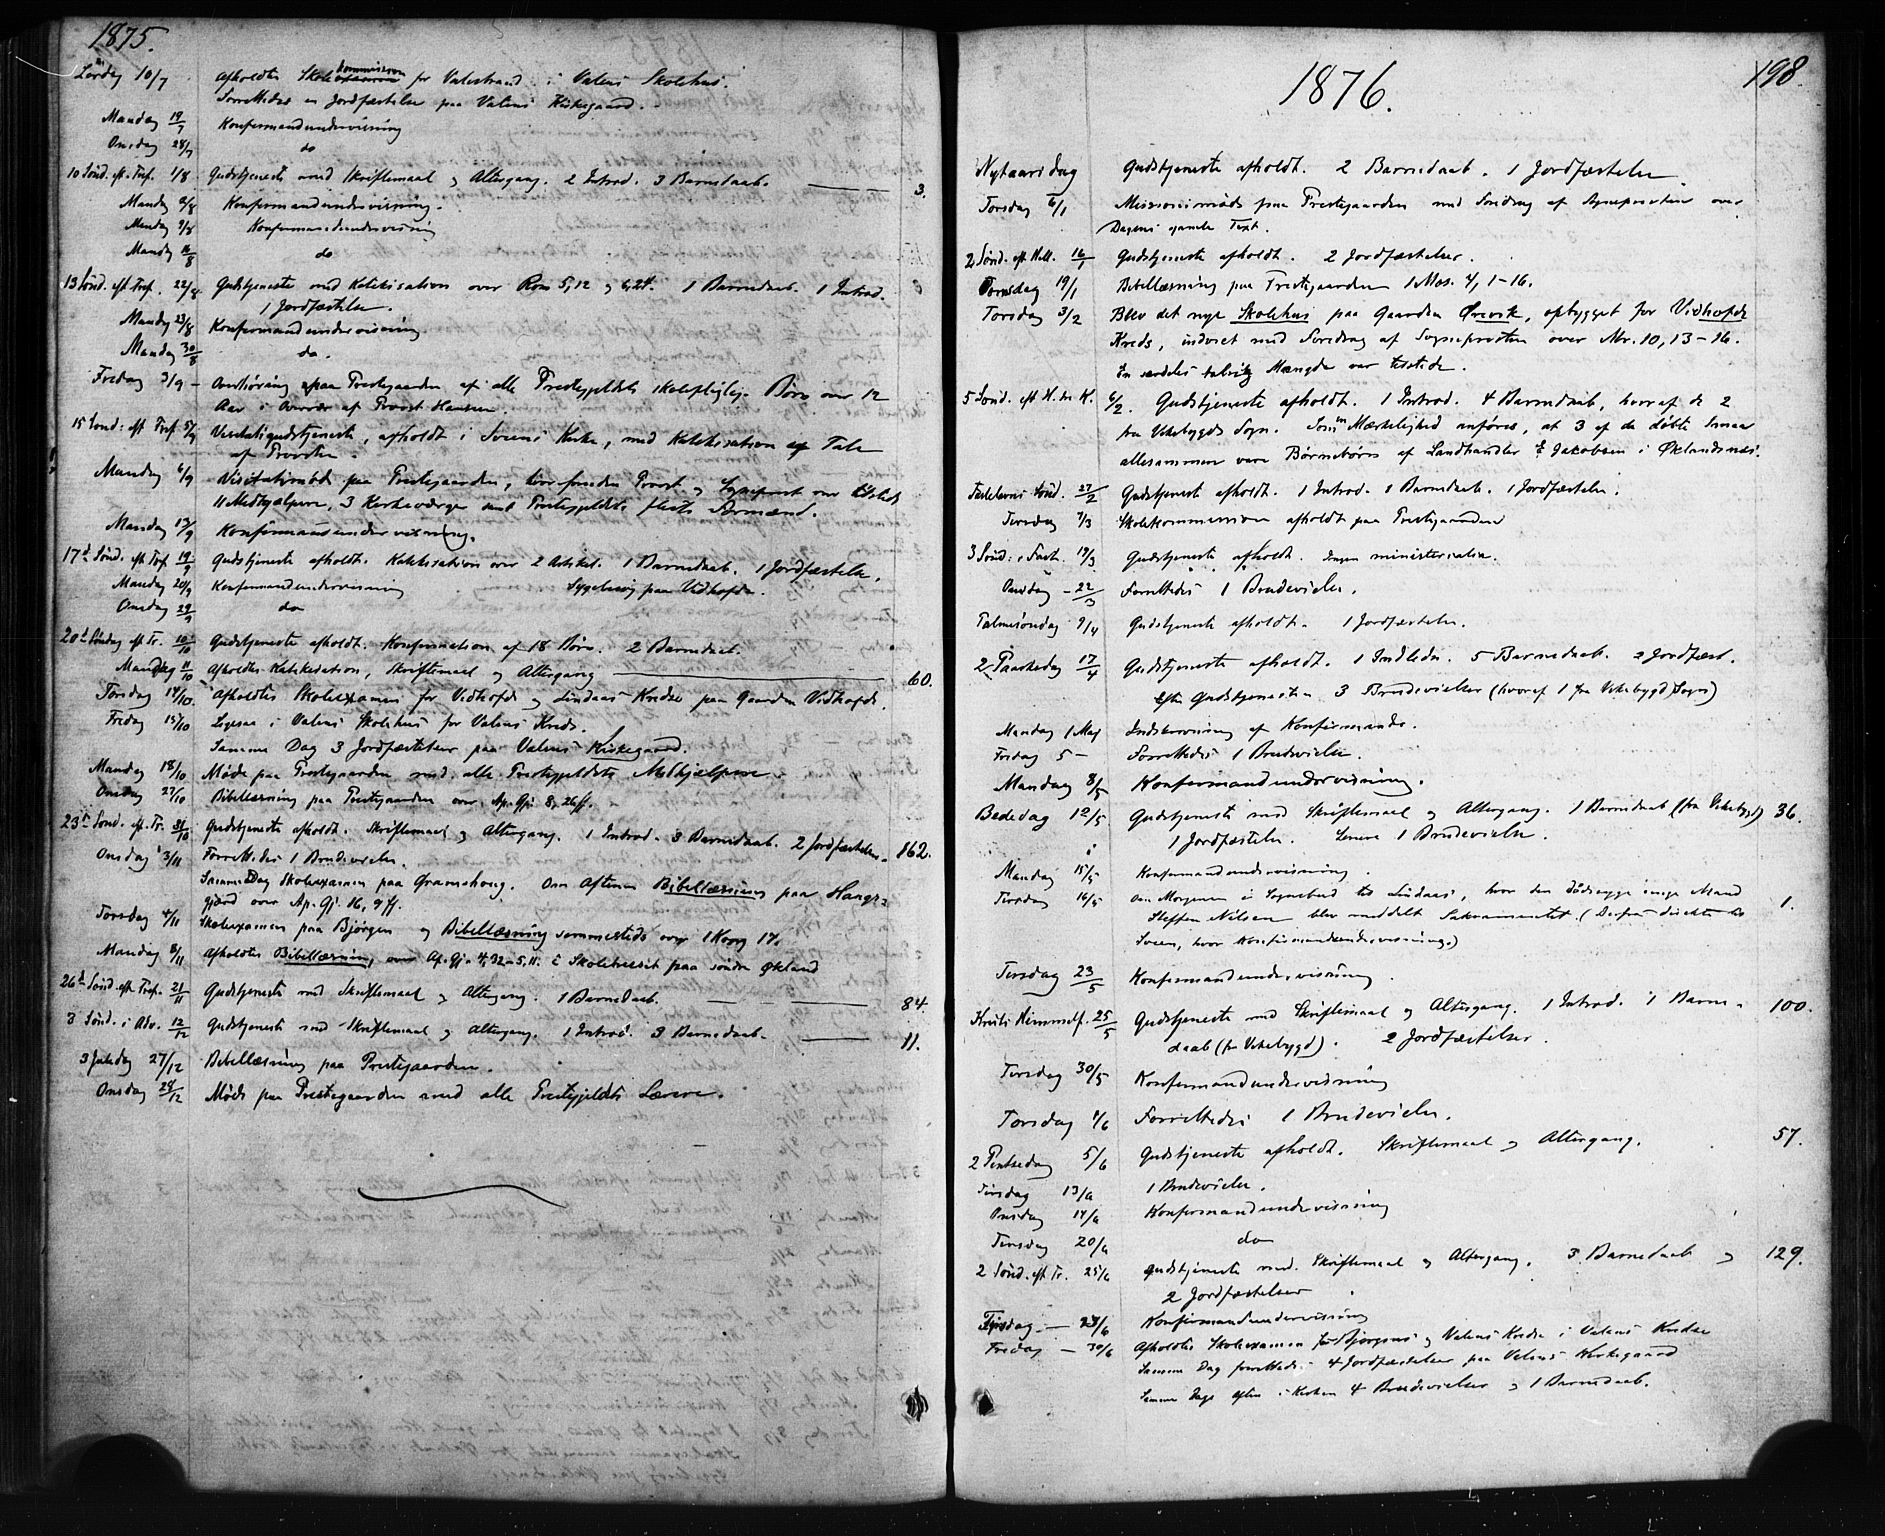 1875.
Lørdag 10/7 Afholdtes Skolekommission for Valestrand i Valens Skolehus.
Forrettedes en Jordfæstelse paa Valens Kirkegaard.
Mandag 19/7 Konfirmandundervisning
Onsdag 28/7 do
10 Sønd. eft. Tref. 1/8 Gudstjeneste med Skriftemaal og Altergang. 2 Introd. 3 Barnedaab. 3.
Mandag 2/8 Konfirmandundervisning.
Mandag 9/8 Konfirmandundervisning
Mandag 16/8 do
13 Sønd. eft Tref. 22/8 Gudstjeneste med Katekisation over Rom 5,12 og 6,24. 1 Barnedaab. 1 Introd.
1 Jordfæstelse.
Mandag 23/8 Konfirmandundervisning.
Mandag 30/8 do.
Fredag 3/9 – Overhøring paa Prestegaarden af alle Prestegjeldets skolepligtige Børn over 12
Aar i Overvær af Provst Hansen.
15 Sønd. eft Tref 5/9 Visitatsgudstjeneste, afholdt i Sveens Kirke, med Katekisation og Tale
af Provsten.
Mandag 6/9 Visitatsmøde paa Prestegaarden, hvor foruden Provst og Sogneprest var tilstede
11 Medhjælpere, 3 Kirkeværger samt Prestegjeldets fleste Formænd.
Mandag 13/9 Konfirmandundervisning.
17de Sønd. eft. Tref. 19/9 Gudstjeneste afholdt. Katekisation over 2 Artikel. 1 Barnedaab. 1 Jordfæstelse.
Mandag 20/9 Konfirmandundervisning Sygebesøg paa Vidhofde.
Onsdag 29/9 do
20de Søndag eft Tr. 10/10 Gudstjeneste afholdt. Konfirmation af 18 Børn. 2 Barnedaab.
Mandag 11/10 Afholdtes Katekisation, Skriftemaal og Altergang 60.
Torsdag 14/10. Afholdtes Skoleexamen for Vidhofde og Lindaas Kredse paa Gaarden Vidhofde.
Fredag 15/10 Ligesaa i Valens Skolehus for Valens Kreds.
Samme Dag 3 Jordfæstelser paa Valens Kirkegaard.
Mandag 18/10 Møde paa Prestegaarden med alle Prestegjeldets Medhjælpere
Onsdag 27/10 Bibellæsning paa Prestegaarden over Ap. Gj. 8, 26 ff.
23de Sønd. eft. Tr. 31/10 Gudstjeneste afholdt. Skriftemaal og Altergang. 1 Introd. 3 Barnedaab. 2 Jordfæstelser. 862.
Onsdag 3/11 Forrettedes 1 Brudevielse.
Samme Dag Skoleexamen paa Gramshoug. Om Aftenen Bibellæsning paa Hauge-
gjærd over Ap. Gj. 16, 9 ff.
Torsdag 4/11 Skoleexamen paa Bjørgen og Bibellæsning sammesteds over 1 Korg 17.
Mandag 8/11 Afholdtes Bibellæsning over Ap. Gj. 4,32–5,11. i Skolekredsit paa søndre Økland
26de Sønd. eft. Tref. 21/11 Gudstjeneste med Skriftemaal og Altergang. 1 Barnedaab. 84.
3 Sønd. i Adv. 12/12 Gudstjeneste med Skriftemaal og Altergang. 1 Introd. 3 Barnedaab. 11.
3 Juledag 27/12 Bibellæsning paa Prestegaarden.
Onsdag 28/12 Møde paa Prestegaarden med alle Prestegjeldets Lærere.
198.
1876.
Nytaarsdag Gudstjeneste afholdt. 2 Barnedaab. 1 Jordfæstelse.
Torsdag 6/1 Missionsmøde paa Prestegaarden med Foredrag af Sognepresten over
Dagens gamle Text.
2 Sønd. eft Hell. 16/1 Gudstjeneste afholdt. 2 Jordfæstelser.
Onsdag 19/1 Bibellæsning paa Prestegaarden 1 Mos. 4, 1–16.
Torsdag 3/2 Blev det nye Skolehus paa Gaarden Ørevik, opbygget for Vidhofde
Kreds, indviet med Foredrag af Sognepresten over Mr. 10, 13–16.
En særdeles talrig Mængde var tilstede.
5 Sønd. eft H. tre K. 6/2. Gudstjeneste afholdt. 1 Introd. 4 Barnedaab, hvoraf de 2
fra Vikebygds Sogn. Som en Mærkelighed anføres, at 3 af de døbte Smaa
allesammen vare Børnebørn af Landhandler E Jakobsen i Øklandsnæs.
Fastelavns Sønd. 27/2 Gudstjeneste afholdt. 1 Introd. 1 Barnedaab. 1 Jordfæstelse.
Tirsdag 7/3 Skolekommission afholdt paa Prestegaarden
3 Sønd. i Fast. 19/3 Gudstjeneste afholdt. Ingen ministerialia.
Onsdag – 22/3 Forrettedes 1 Brudevielse.
Palmesøndag 9/4 Gudstjeneste afholdt. 1 Jordfæstelse.
2 Paaskedag 17/4 Gudstjeneste afholdt. 1 Indledn. 5 Barnedaab. 2 Jordfæst.
Efter Gudstjenesten 3 Brudevielser (hvoraf 1 fra Vikebygd Sogn)
Mandag 1 Maj Indskrivning af Konfirmander.
Fredag 5 – Forrettedes 1 Brudevielse.
Mandag 8/5 Konfirmandundervisning.
Bededag 12/5 Gudstjeneste med Skriftemaal og Altergang. 1 Barnedaab (fra Vikebygd) 36.
1 Jordfæstelse. Senere 1 Brudevielse.
Mandag 15/5 Konfirmandundervisning.
Tirsdag 16/5 Om Morgenen i Sognebud til Lindaas, hvor den dødssyge unge Mand
Steffen Nilsen blev meddelt Sakramentet. (Derfra direkte til 1.
Sveen, hvor Konfirmandundervisning.)
Tirsdag 23/5 Konfirmandundervisning.
Kristi Himmelf. 25/5 Gudstjeneste med Skriftemaal og Altergang. 1 Introd. 1 Barne- 100.
daab (fra Vikebygd). 2 Jordfæstelser.
Tirsdag 30/5 Konfirmandundervisning
Torsdag 1/6 Forrettedes 1 Brudevielse.
2 Pintsedag 5/6 Gudstjeneste afholdt. Skriftemaal og Altergang. 57.
1 Brudevielse.
Tirsdag 13/6
Onsdag 14/6 Konfirmandundervisning
Tirsdag 20/6 do
2 Sønd. eft Tr. 25/6 Gudstjeneste med Skriftemaal og Altergang. 3 Barnedaab og 129.
2 Jordfæstelser
Tirsdag – 27/6 Konfirmandundervisning
Fredag – 30/6 Afholdtes Skoleexamen for Bjørgens og Valens Kredse i Valens Kredse
Samme Dag forrettedes 4 Jordfæstelser paa Valens Kirkegaard
Samme Dags Aften i Kirken 4 Brudevielser og 1 Barnedaab.